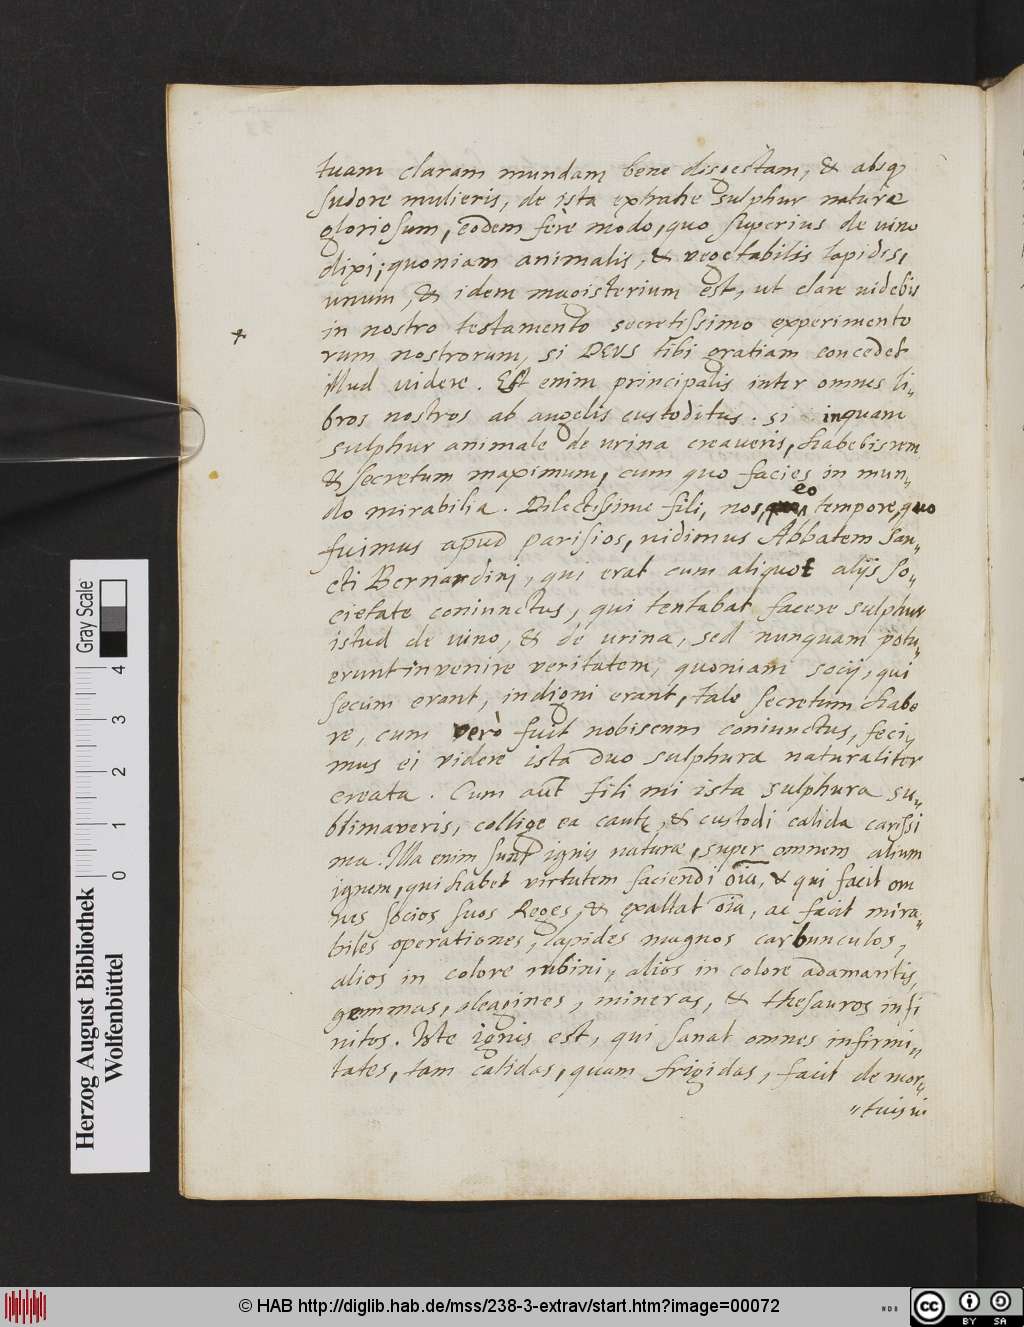 tuam claram mundam bene digestam, & absq
sudore mulieris, de ista extrahe sulphur naturæ
gloriosum, eodem ferè modo, quo superius de vino
dixi; quoniam animalis, & vegetabilis lapidis,
unum, & idem magisterium est, ut clare videbis
in nostro testamento secretissimo experimento
rum nostrorum, si DEUS tibi gratiam concedet
illud videre. Est enim principalis inter omnes li„
bros nostros ab angelis custoditus. si inquam
sulphur animale de urina creaveris, habebis rem
& secretum maximum, cum quo facies in mun„
do mirabilia. Dilectissime fili, nos, eo tempore, quo
fuimus apud parisios, vidimus Abbatem San„
cti Bernardini, qui erat cum aliquot alijs so„
cietate coniunctus, qui tentabat facere sulphur
istud de vino, & de urina, sed nunquam potu„
erunt invenire veritatem, quoniam socij, qui
secum erant, indigni erant, tale secretum habe
re, cum verò fuit nobiscum coniunctus, feci„
mus ei videre ista duo sulphura naturaliter
creata. Cum aut fili mi ista sulphura su„
blimaveris, collige ea cautè, & custodi calida carissi
ma. Illa enim sunt ignis naturæ, super omnem alium
ignem, qui habet virtutem faciendi oia, & qui facit om
nes socios suos Reges, & exaltat oia, ac facit mira„
biles operationes, lapides magnos carbunculos,
alios in colore rubini, alios in colore adamantis,
gemmas, oleagines, mineras, & thesauros infi
nitos. Iste ignis est, qui sanat omnes infirmi„
tates, tam calidas, quam frigidas, facit de mor„
„tuis vi
Herzog August Bibliothek
Wolfenbüttel
0 1 2 3 4
Gray Scale
© HAB http://diglib.hab.de/mss/238-3-extrav/start.htm?image=00072
cc BY SA